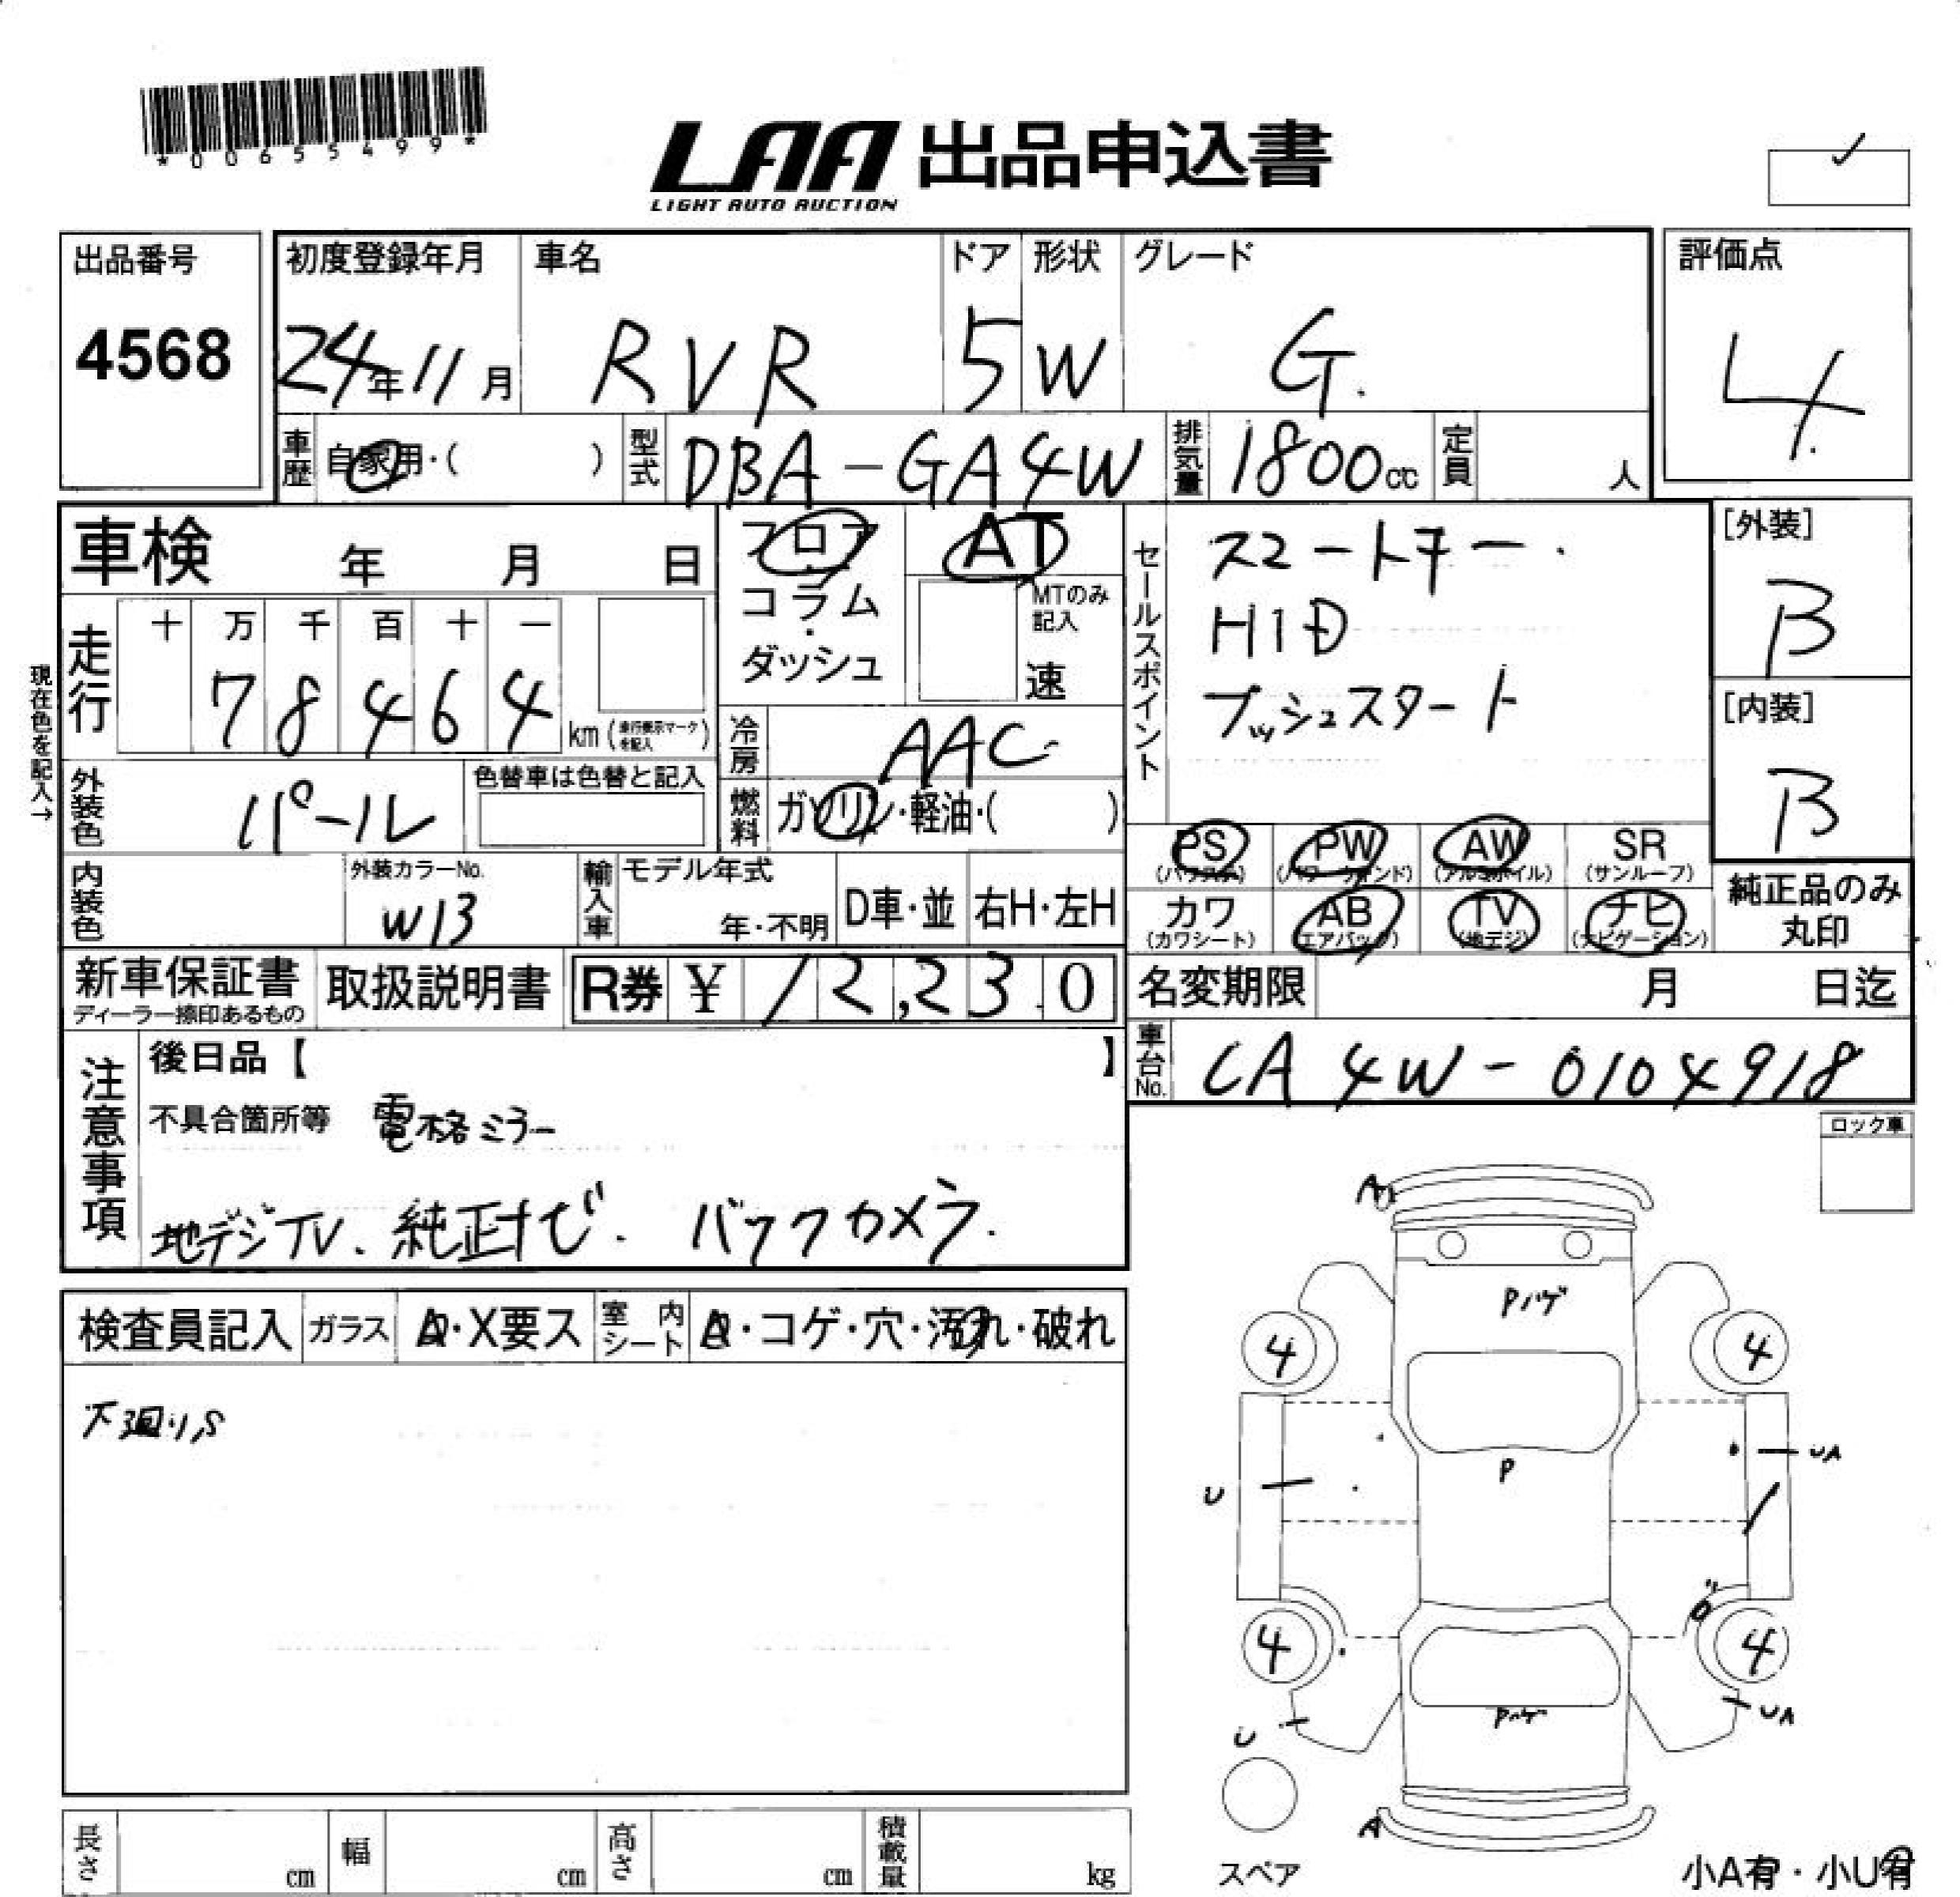 *00655499*
LAA 出品申込書
LIGHT AUTO AUCTION
出品番号
4568
初度登録年月
24年11月
車名
RVR
ドア
5
形状
W
グレード
G.
評価点
4
車歴
自家用・( )
型式
DBA-GA4W
排気量
1800cc
定員
人
車検 年 月 日
フロア
コラム
・
ダッシュ
AT
MTのみ
記入
速
セールスポイント
スマートキー.
HID
プッシュスタート
[外装]
B
[内装]
B
現在色を記入→
走行
十 万 千 百 十 一
7 8 4 6 4
km (走行表示マークを記入)
冷房
AAC
燃料
ガソリン・軽油・( )
外装色
パール
色替車は色替と記入
内装色
外装カラーNo.
W13
輸入車
モデル年式
年・不明
D車・並
右H・左H
PS
(パワステ)
PW
(パワーウィンド)
AW
(アルミホイル)
SR
(サンルーフ)
カワ
(カワシート)
AB
(エアバック)
TV
(地デジ)
ナビ
(ナビゲーション)
純正品のみ
丸印
新車保証書
ディーラー捺印あるもの
取扱説明書
R券 ¥ 12,230
名変期限 月 日迄
注意事項
後日品【 】
不具合箇所等 電格ミラー
地デジTV. 純正ナビ. バックカメラ.
車台No.
GA4W-0104918
ロック車
検査員記入
ガラス
A・X要ス
室内シート
A・コゲ・穴・汚れ・破れ
下廻りS
A
Pハゲ
4 4
P
U
UA
4 4
Pハゲ
U
UA
A
スペア
小A有・小U有
長さ cm
幅 cm
高さ cm
積載量 kg